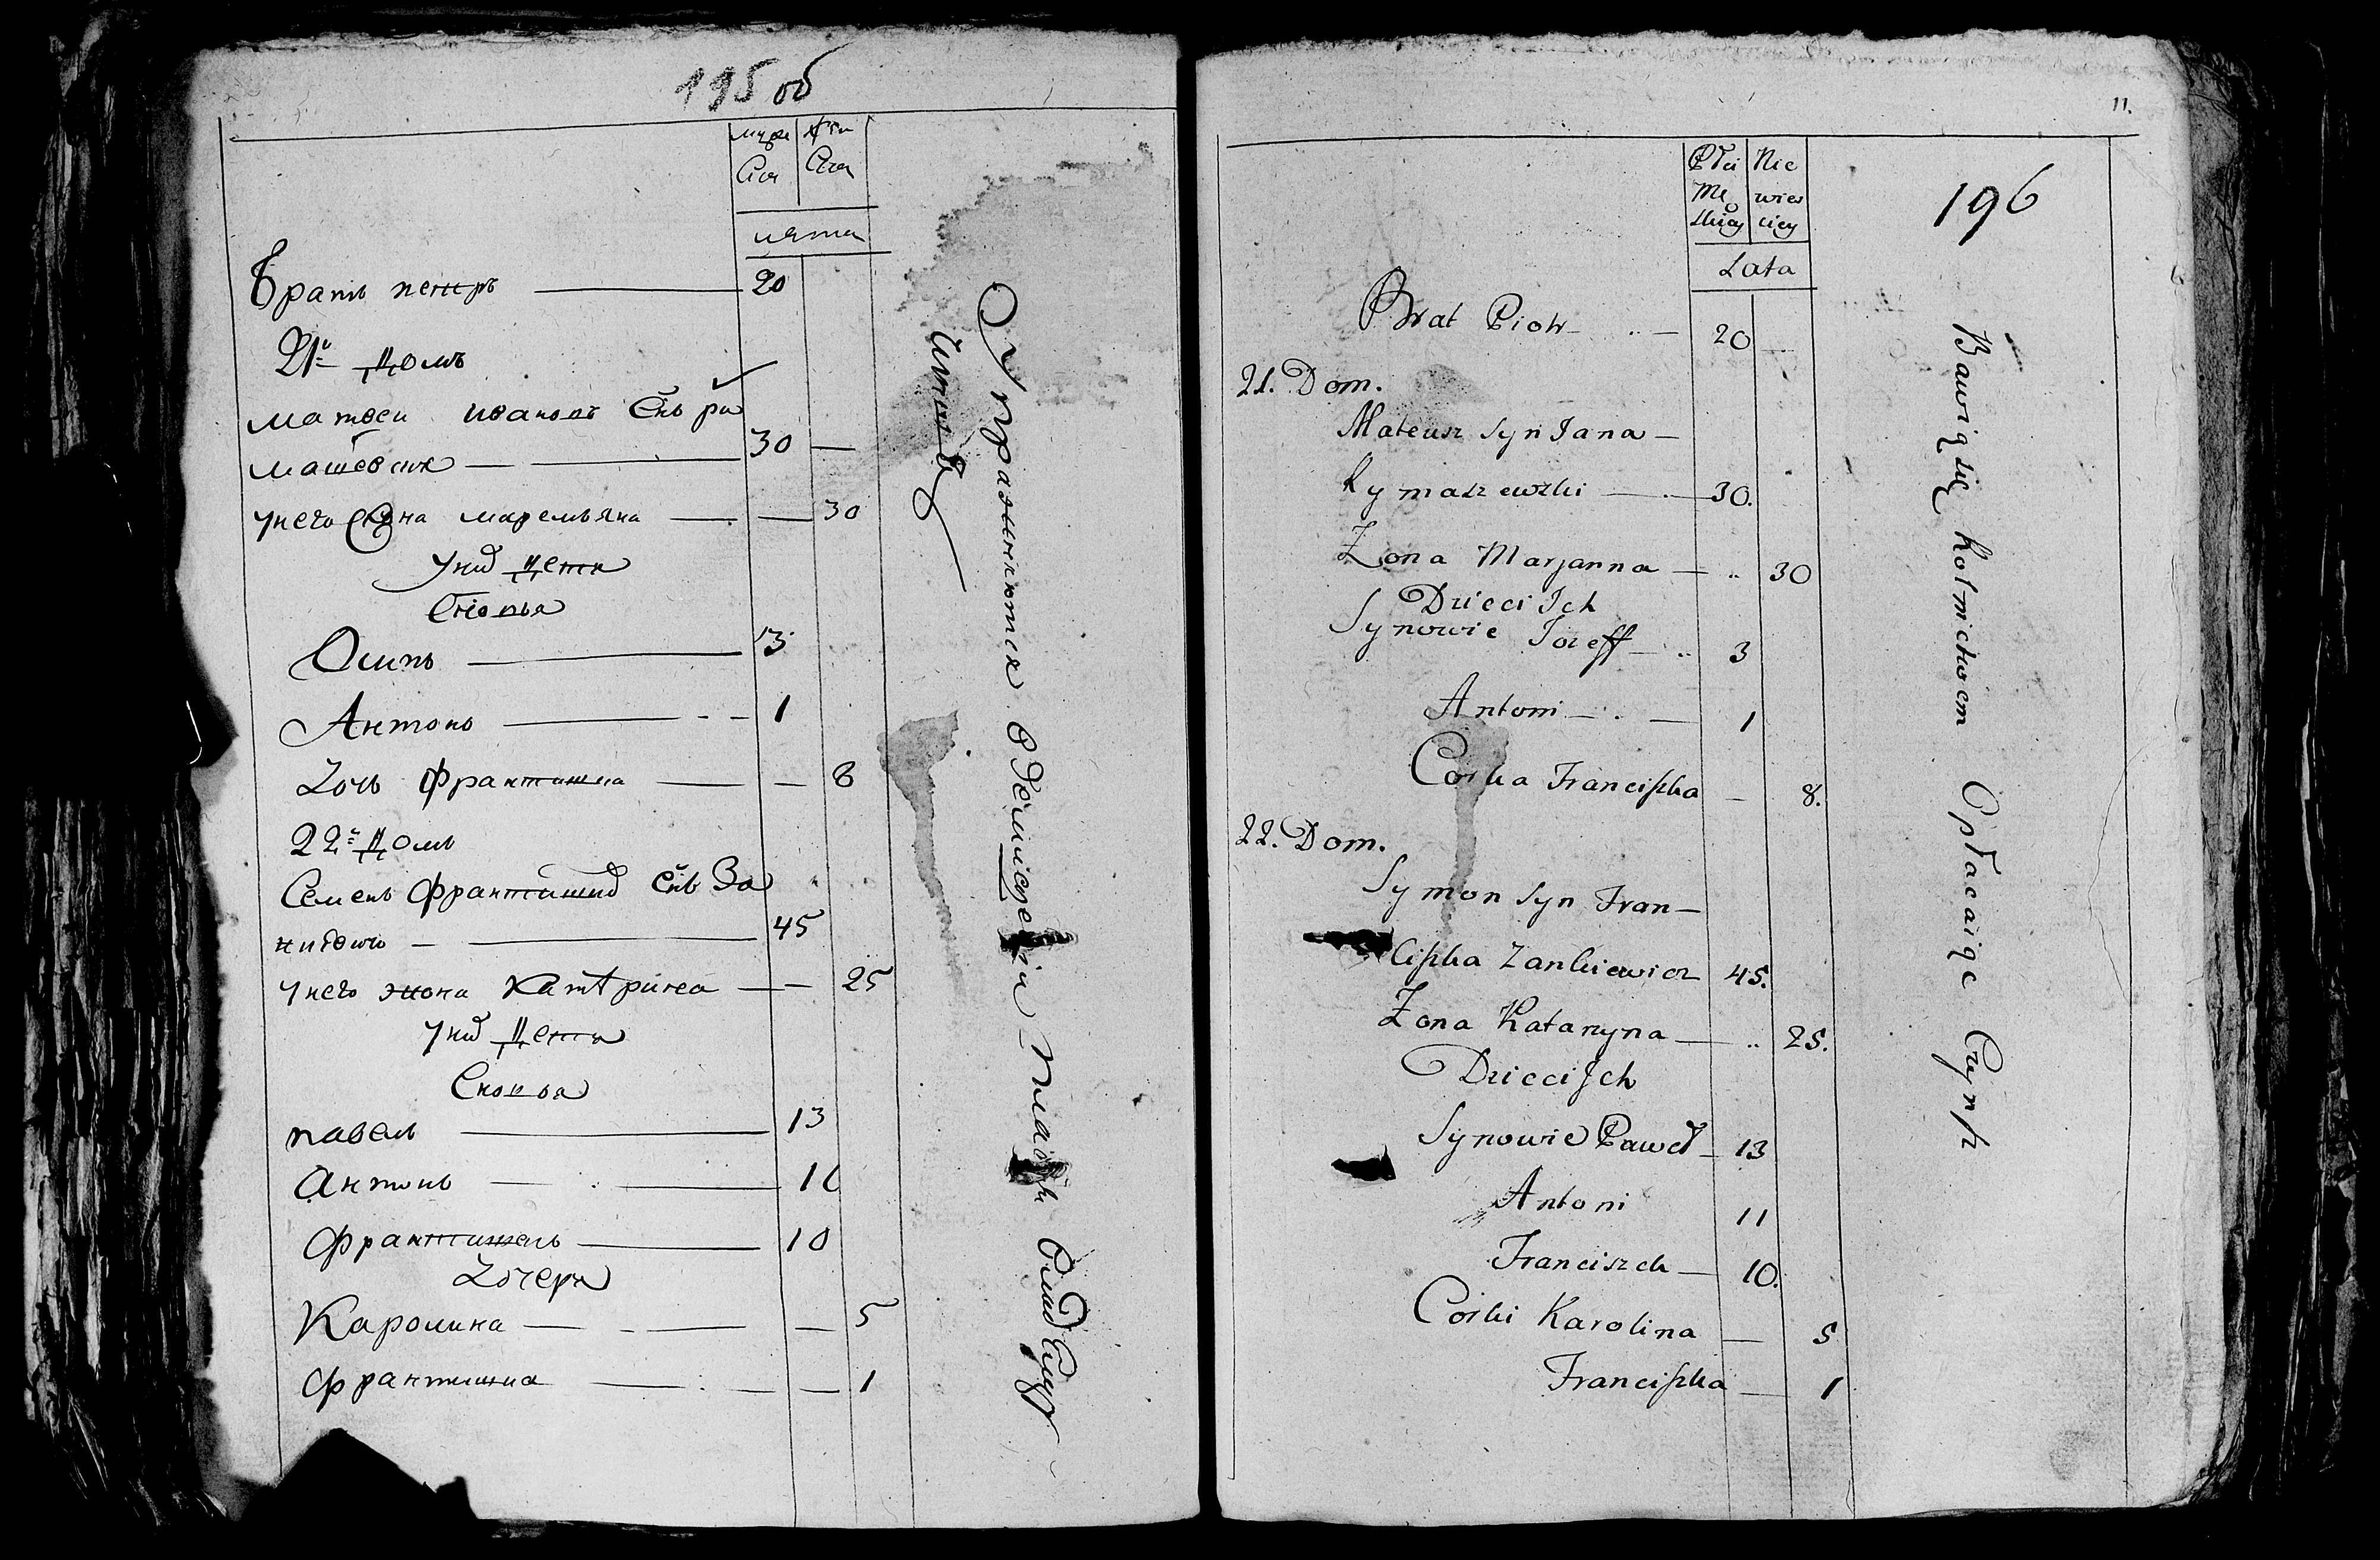 195 об
муже ска
жен ска
лѣта
Братъ петръ 20
21й Домъ
матвеи ивановъ Снъ ры
машевски 30
унего Жона маремьяна 30
уних Дети
Сновья
Осипъ 3
Антонъ 1
Дочь франтишка 8
22й Домъ
Семенъ франтишковъ Снъ За
нкевичъ 45
унего жона Катерина 25
уних Дети
Сновья
павелъ 13
Антонъ 11
франтишекъ 10
Дочери
Каролина 5
франтишка 1
Упражняются в земледелии платят чинш
11.
196
Płci Mę skiey
Nie wies ciey
Lata
Brat Piotr 20
21. Dom.
Mateusz Syn Jana
Rymaszewski 30.
Zona Marjanna 30
Dzieci Ich
Synowie Jozeff 3
Antoni 1
Corka Franciszka 8.
22. Dom.
Symon Syn Fran-
ciszka Zankiewicz 45.
Zona Katarzyna 25.
Dzieci Ich
Synowie Paweł 13
Antoni 11
Franciszek 10.
Corki Karolina 5
Franciszka 1
Bawią się Rolnictwem Opłacaiąc Czynsz